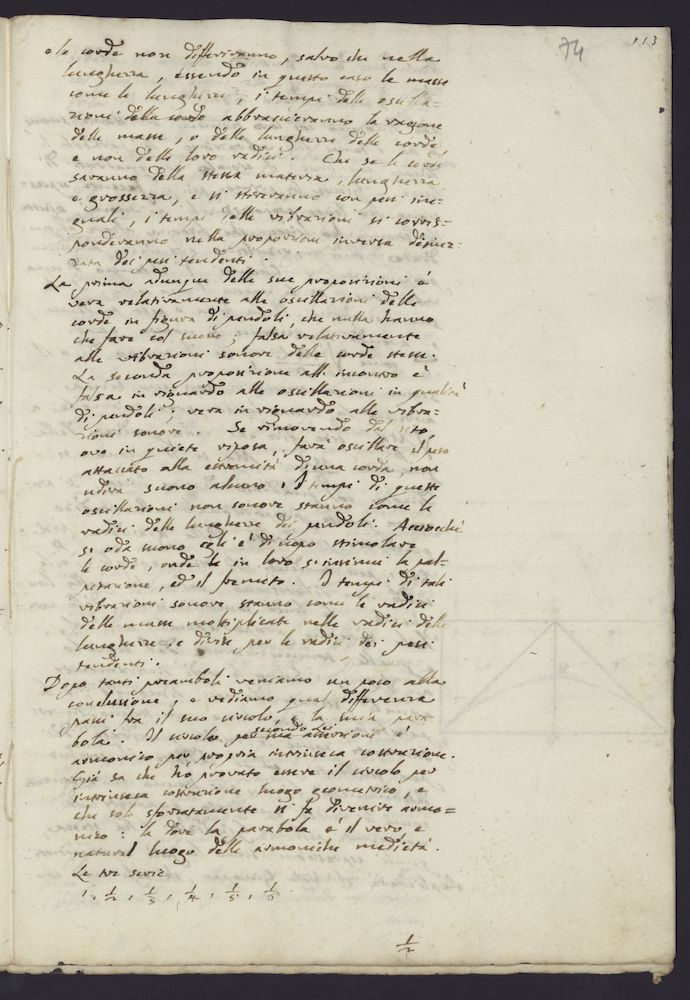 74
113
e le corde non differiranno, salvo che nella
lunghezza, essendo in questo caso le masse
come le lunghezze, i tempi delle oscilla=
zioni della corda abbracieranno la ragione
delle masse, o delle lunghezze delle corde
e non delle loro radici. Che se le corde
saranno della stessa materia, lunghezza
e grossezza, e si stireranno con pesi ine=
guali, i tempi delle vibrazioni si corris=
ponderanno nella proporzione inversa dimez=
zata dei pesi tendenti.
La prima adunque delle sue proposizioni è
vera relativamente alle oscillazioni delle
corde in figura di pendoli, che nulla hanno
che fare col suono; falsa relativamente
alle vibrazioni sonore delle corde stesse.
La seconda proposizione all' incontro è
falsa in riguardo alle oscillazioni in qualità
di pendoli; vera in riguardo alle vibra=
zioni sonore. Se rimovendo dal sito
ove in quiete riposa, farà oscillare il peso
attaccato alla estremità di una corda, non
udirà suono alcuno. I tempi di queste
oscillazioni non sonore stanno come le
radici delle lunghezze dei pendoli. Acciocchè
si oda suono egli è di uopo stimolare
le corde, onde in loro si insinui la pal=
pitazione, ed il fremito. I tempi di tali
vibrazioni sonore, stanno come le radici
delle masse moltiplicate nelle radici delle
lunghezze, e divise per le radici dei pesi
tendenti.
Dopo tanti preamboli veniamo un poco alla
conclusione, e vediamo qual differenza
passi tra il suo circolo, e la mia para=
bola. Il circolo per sua asserzione è
secondo lei
armonico per propria intrinseca costruzione.
Già sa che ho provato essere il circolo per
intrinseca costruzione luogo geometrico, e
che solo sforzatamente si fa divenire armo=
nico: la dove la parabola è il vero, e
natural luogo delle armoniche medietà.
Le tre serie
1, 1/2, 1/3, 1/4, 1/5, 1/6.
1/2